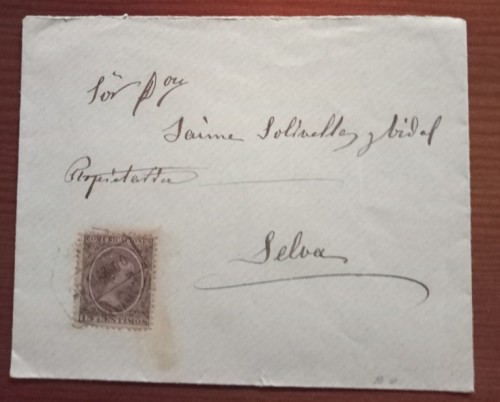 Sõr Dⁿ
Jaime Solivellas y Vidal
Propietario
Selva
15 CENTIMOS